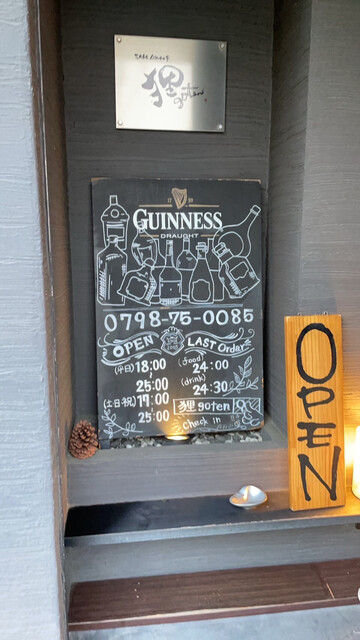 狸
17 59
GUINNESS
DRAUGHT
0798-75-0085
OPEN
LAST order
(平日) 18:00
25:00
(土日祝) 17:00
25:00
(food)
24:00
(drink)
24:30
狸 goten
check in
OPEN